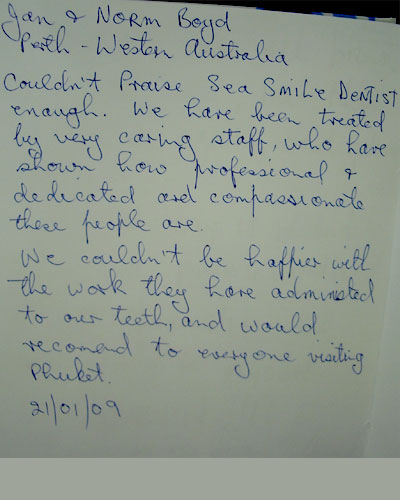 Jan & Norm Boyd
Perth - Western Australia
Couldn't Praise Sea Smile Dentist
enough. We have been treated
by very caring staff, who have
shown how professional &
dedicated and compassionate
these people are.
We couldn't be happier with
the work they have administed
to our teeth, and would
recomend to everyone visiting
Phuket.
21/01/09